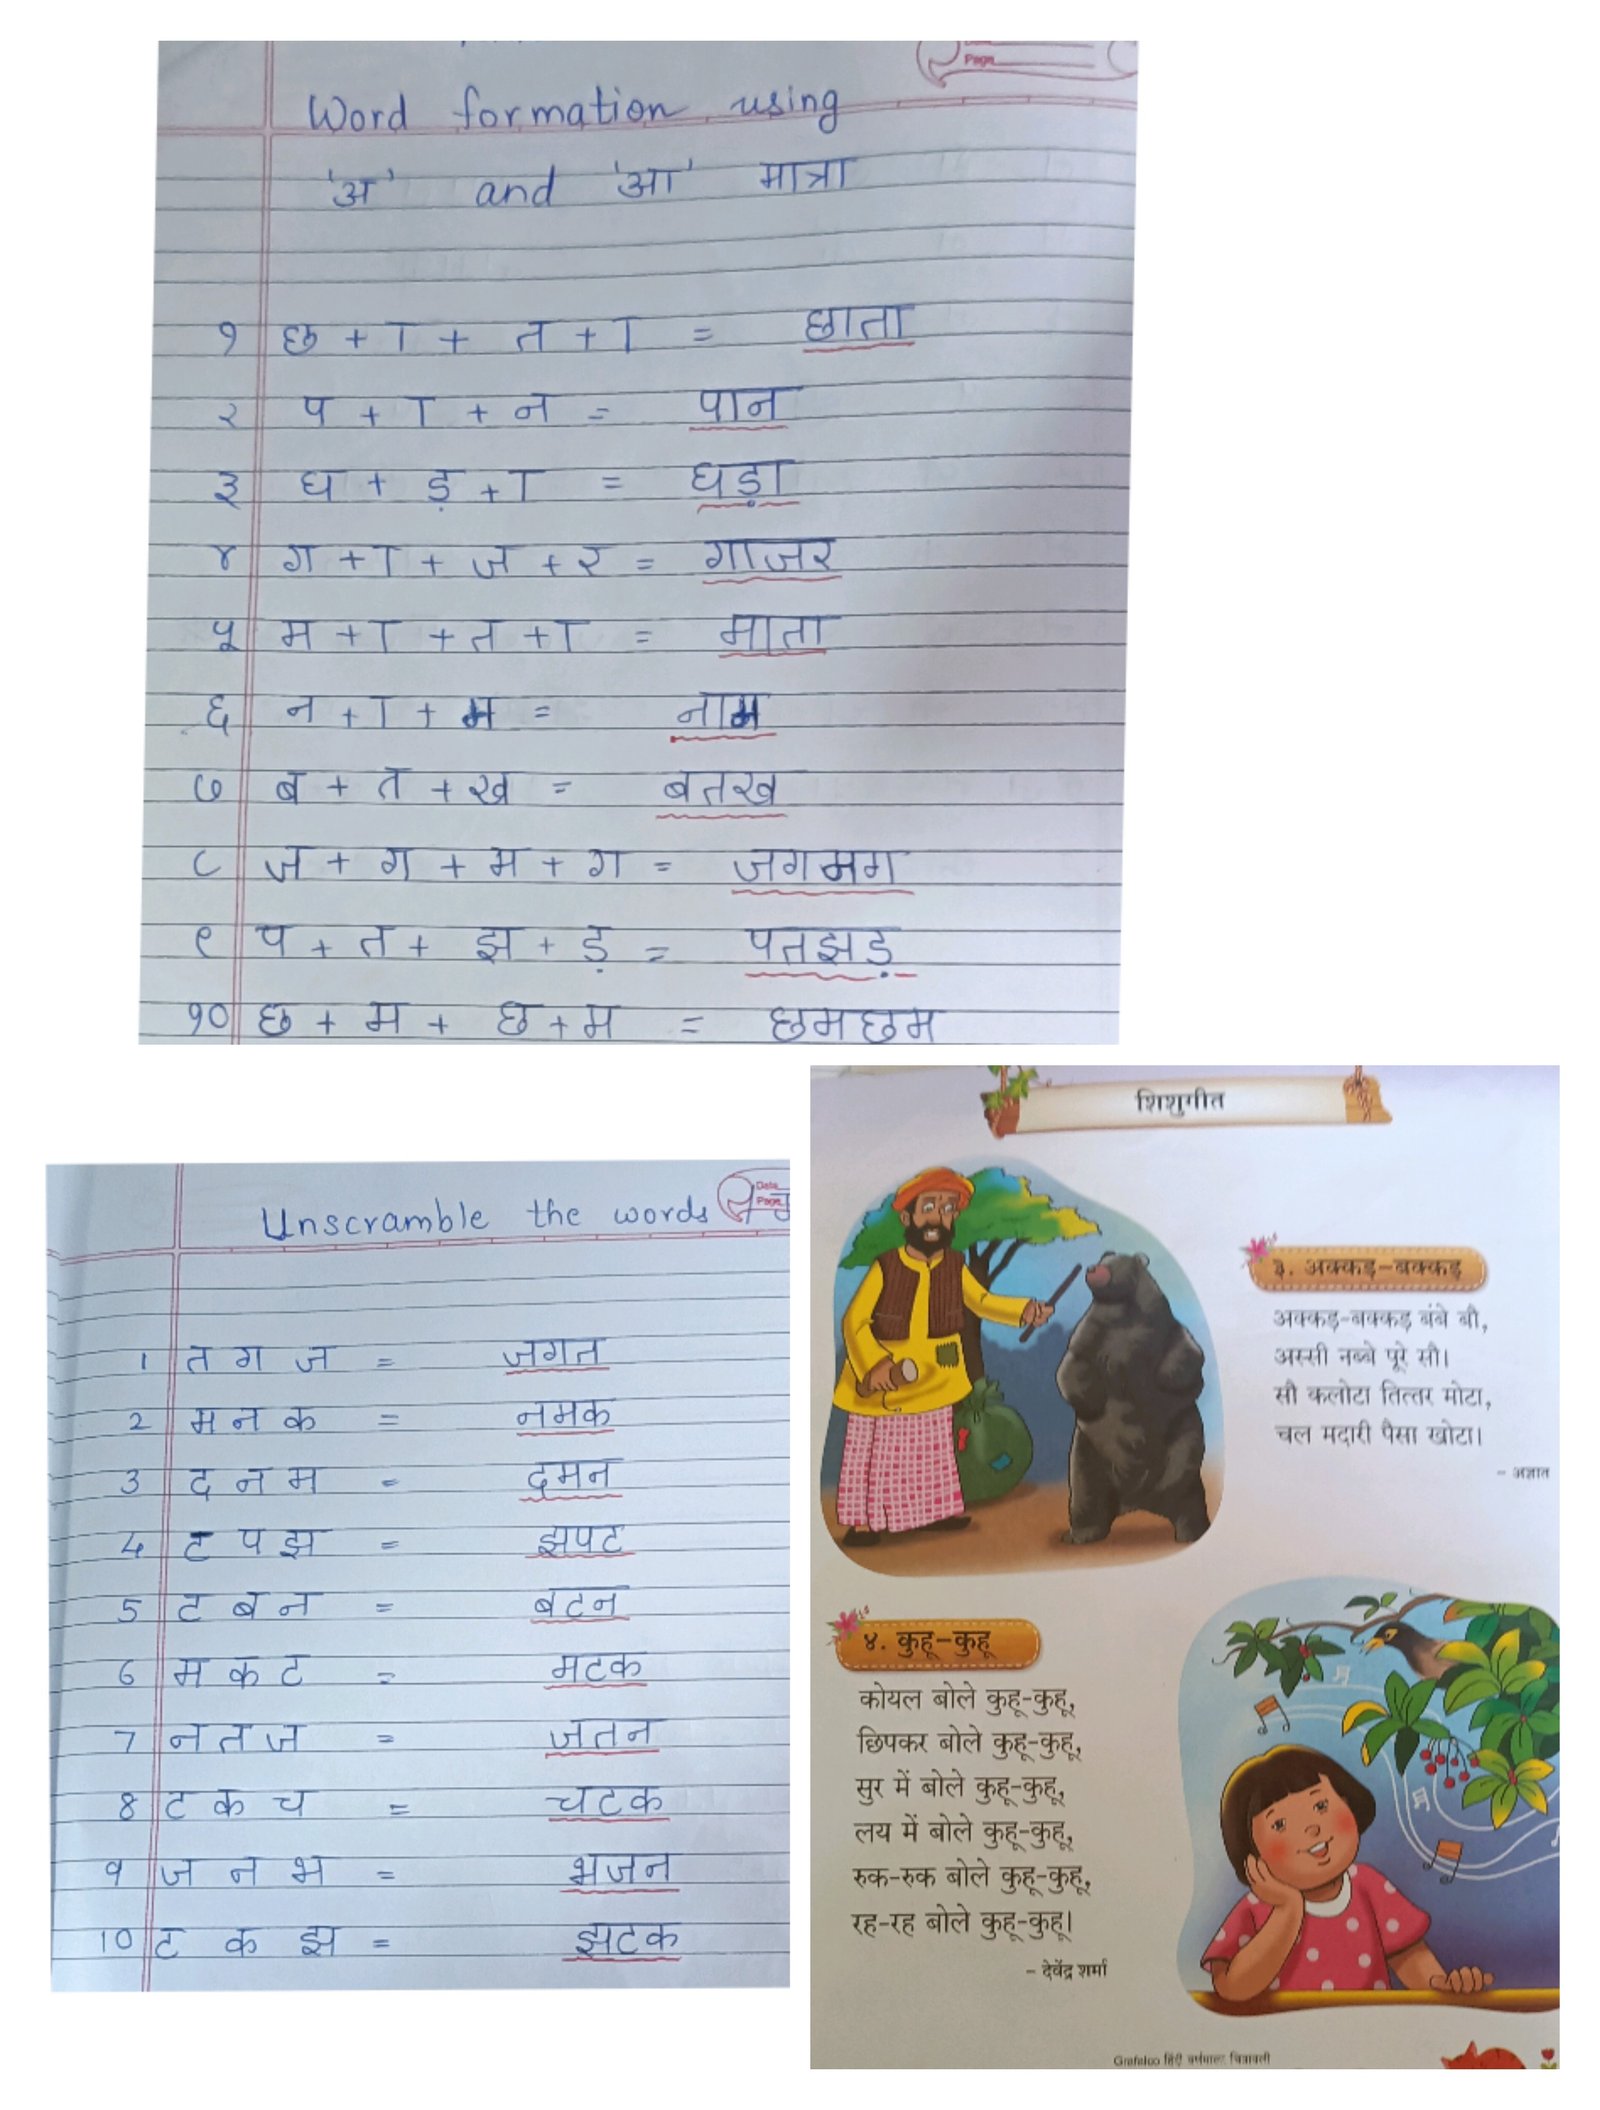 Page
Word formation using
'अ' and 'आ' मात्रा
१ छ + ा + त + ा = छाता
२ प + ा + न = पान
३ घ + ड़ + ा = घड़ा
४ ग + ा + ज + र = गाजर
५ म + ा + त + ा = माता
६ न + ा + म = नाम
७ ब + त + ख = बतख
८ ज + ग + म + ग = जगमग
९ प + त + झ + ड़ = पतझड़
१० छ + म + छ + म = छमछम
Date
Page
Unscramble the words
1 त ग ज = जगत
2 म न क = नमक
3 द न म = दमन
4 ट प झ = झपट
5 ट ब न = बटन
6 म क ट = मटक
7 न त ज = जतन
8 ट क च = चटक
9 ज न भ = भजन
10 ट क झ = झटक
शिशुगीत
३. अक्कड़-बक्कड़
अक्कड़-बक्कड़ बंबे बौ,
अस्सी नब्बे पूरे सौ।
सौ कलोटा तित्तर मोटा,
चल मदारी पैसा खोटा।
- अज्ञात
४. कुहू-कुहू
कोयल बोले कुहू-कुहू,
छिपकर बोले कुहू-कुहू,
सुर में बोले कुहू-कुहू,
लय में बोले कुहू-कुहू,
रुक-रुक बोले कुहू-कुहू,
रह-रह बोले कुहू-कुहू।
- देवेंद्र शर्मा
Grafaloo हिंदी वर्णमाला चित्रावली